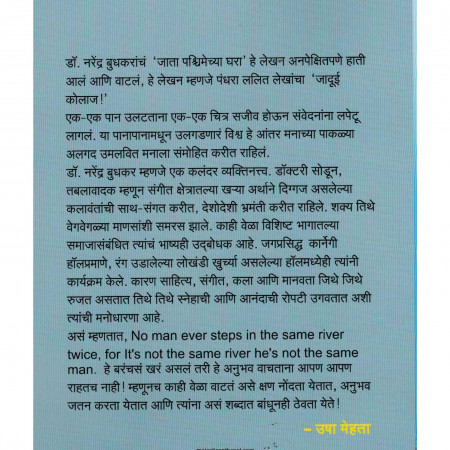 डॉ. नरेंद्र बुधकरांचं ‘जाता पश्चिमेच्या घरा’ हे लेखन अनपेक्षितपणे हाती
आलं आणि वाटलं, हे लेखन म्हणजे पंधरा ललित लेखांचा ‘जादूई
कोलाज!’
एक-एक पान उलटताना एक-एक चित्र सजीव होऊन संवेदनांना लपेटू
लागलं. या पानापानामधून उलगडणारं विश्व हे आंतर मनाच्या पाकळ्या
अलगद उमलवित मनाला संमोहित करीत राहिलं.
डॉ. नरेंद्र बुधकर म्हणजे एक कलंदर व्यक्तिमत्त्व. डॉक्टरी सोडून,
तबलावादक म्हणून संगीत क्षेत्रातल्या खऱ्या अर्थाने दिग्गज असलेल्या
कलावंतांची साथ-संगत करीत, देशोदेशी भ्रमंती करीत राहिले. शक्य तिथे
वेगवेगळ्या माणसांशी समरस झाले. काही वेळा विशिष्ट भागातल्या
समाजासंबंधित त्यांचं भाष्यही उद्बोधक आहे. जगप्रसिद्ध कार्नेगी
हॉलप्रमाणे, रंग उडालेल्या लोखंडी खुर्च्या असलेल्या हॉलमध्येही त्यांनी
कार्यक्रम केले. कारण साहित्य, संगीत, कला आणि मानवता जिथे जिथे
रुजत असतात तिथे तिथे स्नेहाची आणि आनंदाची रोपटी उगवतात अशी
त्यांची मनोधारणा आहे.
असं म्हणतात, No man ever steps in the same river
twice, for It's not the same river he's not the same
man. हे बरंचसं खरं असलं तरी हे अनुभव वाचताना आपण आपण
राहतच नाही! म्हणूनच काही वेळा वाटतं असे क्षण नोंदता येतात, अनुभव
जतन करता येतात आणि त्यांना असं शब्दात बांधूनही ठेवता येते!
– उषा मेहता